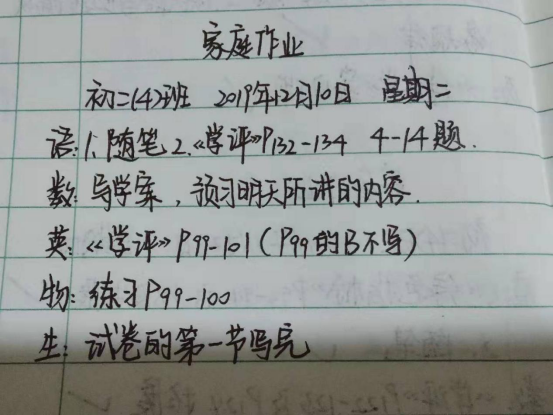 家庭作业
初二(4)班 2019年12月10日 星期二
语:1.随笔2.《学评》P132-134 4-14题.
数:导学案,预习明天所讲的内容.
英:《学评》P99-101(P99的B不写)
物:练习P99-100
生:试卷的第一节写完